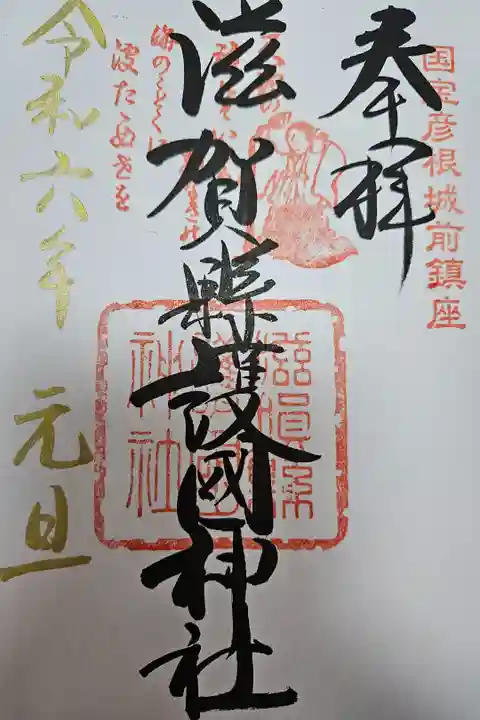 国宝彦根城前鎮座
奉拝
滋賀縣護國神社
滋賀縣
護國
神社
波たゝぬ世を
令和六年 元旦